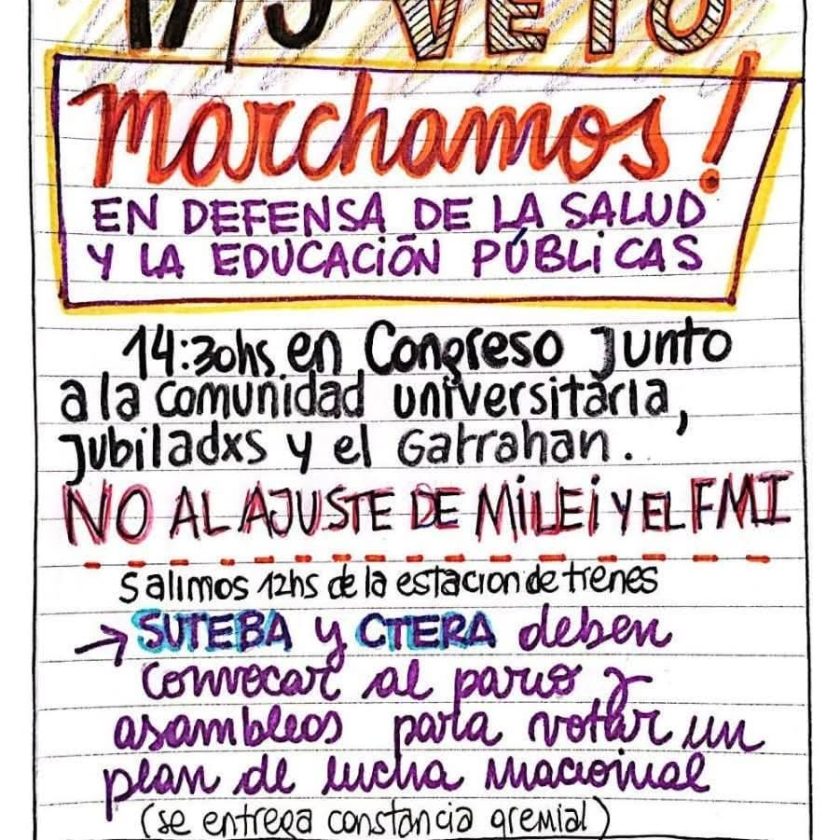 17/9 VETO
marchamos!
EN DEFENSA DE LA SALUD
Y LA EDUCACIÓN PÚBLICAS
14:30hs en Congreso junto
a la comunidad universitaria,
jubiladxs y el Garrahan.
NO AL AJUSTE DE MILEI Y EL FMI
Salimos 12hs de la estacion de trenes
→ SUTEBA y CTERA deben
convocar al paro y
asambleas para votar un
plan de lucha nacional
(se entrega constancia gremial)